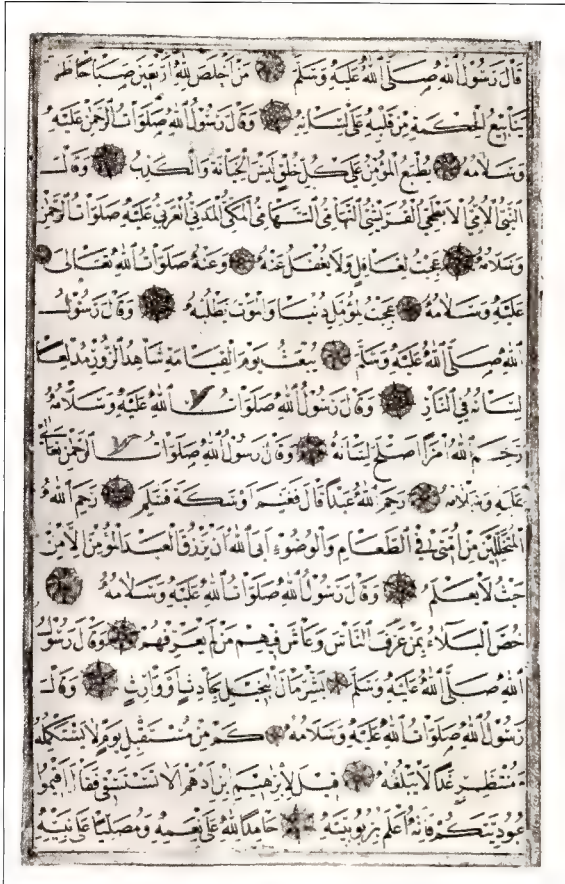 قَالَ رَسُولُ اللهِ صَلَّى اللهُ عَلَيْهِ وَسَلَّمَ مَنْ اَخْلَصَ لِلّٰهِ اَرْبَعِينَ صَبَاحًا ظهر
يَنَابِيعُ الْحِكْمَةِ مِنْ قَلْبِهِ عَلَى لِسَانِهِ وَقَالَ رَسُولُ اللهِ صَلَوَاتُ الرَّحْمٰنِ عَلَيْهِ
وَسَلَامُهُ يُطْبَعُ الْمُؤْمِنُ عَلَى كُلِّ خُلُقٍ لَيْسَ الْخِيَانَةَ وَالْكَذِبَ وَقَالَ
النَّبِيُّ الْاُمِّيُّ الْقُرَيْشِيُّ التِّهَامِيُّ الْمَكِّيُّ الْمَدَنِيُّ الْعَرَبِيُّ عَلَيْهِ صَلَوَاتُ الرَّحْمٰنِ
وَسَلَامُهُ عَجِبْتُ لِغَافِلٍ وَلَا يُغْفَلُ عَنْهُ وَعَنْهُ صَلَوَاتُ اللهِ تَعَالَى
عَلَيْهِ وَسَلَامُهُ عَجِبْتُ لِمُؤَمِّلِ دُنْيَا وَالْمَوْتُ يَطْلُبُهُ وَقَالَ رَسُولُ
اللهِ صَلَّى اللهُ عَلَيْهِ وَسَلَّمَ يُبْعَثُ يَوْمَ الْقِيَامَةِ شَاهِدُ الزُّورِ مُدْلِعًا
لِسَانَهُ فِي النَّارِ وَقَالَ رَسُولُ اللهِ صَلَوَاتُ اللهِ عَلَيْهِ وَسَلَامُهُ
رَحِمَ اللهُ امْرَأً اَصْلَحَ لِسَانَهُ وَقَالَ رَسُولُ اللهِ صَلَوَاتُ الرَّحْمٰنِ تَعَالَى
عَلَيْهِ وَسَلَامُهُ رَحِمَ اللهُ عَبْدًا قَالَ فَغَنِمَ اَوْ سَكَتَ فَسَلِمَ رَحِمَ اللهُ
الْمُتَخَلِّلِينَ مِنْ اُمَّتِي فِي الطَّعَامِ وَالْوُضُوءِ اَبَى اللهُ اَنْ يَرْزُقَ الْعَبْدَ الْمُؤْمِنَ اِلَّا مِنْ
حَيْثُ لَا يَعْلَمُ وَقَالَ رَسُولُ اللهِ صَلَوَاتُ اللهِ عَلَيْهِ وَسَلَامُهُ
خُصَّ الْبَلَاءُ بِمَنْ عَرَفَ النَّاسَ وَعَاشَ فِيهِمْ مَنْ لَمْ يَعْرِفْهُمْ وَقَالَ رَسُولُ
اللهِ صَلَّى اللهُ عَلَيْهِ وَسَلَّمَ بَشِّرْ مَالَ الْبَخِيلِ بِحَادِثٍ اَوْ وَارِثٍ وَقَالَ
رَسُولُ اللهِ صَلَوَاتُ اللهِ عَلَيْهِ وَسَلَامُهُ كَمْ مِنْ مُسْتَقْبِلٍ يَوْمًا لَا يَسْتَكْمِلُهُ
وَمُنْتَظِرٍ غَدًا لَا يَبْلُغُهُ قِيلَ لِاِبْرٰهِيمَ بْنِ اَدْهَمَ اَلَا تَسْتَسْقِي فَقَالَ اَقِيمُوا
عُبُودِيَّتَكُمْ فَاِنَّهُ اَعْلَمُ بِرُبُوبِيَّتِهِ حَامِدًا لِلّٰهِ عَلَى نِعَمِهِ وَمُصَلِّيًا عَلَى نَبِيِّهِ